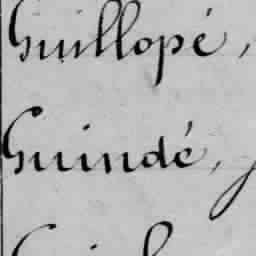 Guillopé,
Guindé,